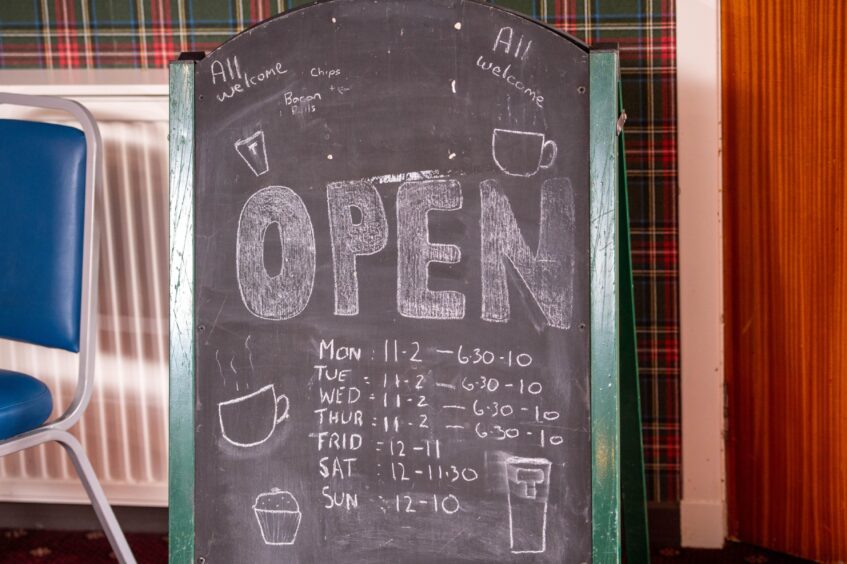 All
welcome
Chips
Bacon
Rolls
All
welcome
T
OPEN
MON : 11-2 — 6.30-10
TUE : 11-2 — 6.30-10
WED : 11-2 — 6.30-10
THUR : 11-2 — 6.30-10
FRID : 12-11
SAT : 12-11.30
SUN : 12-10
T